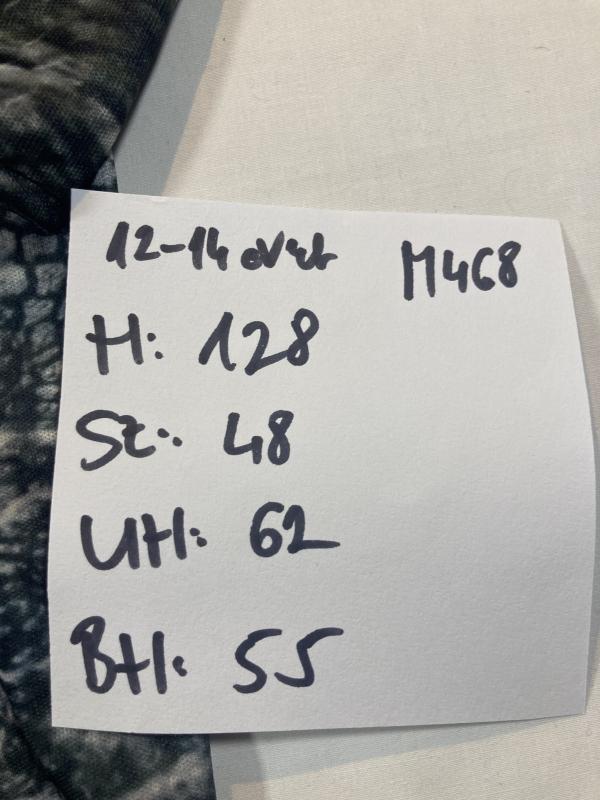 12-14 éves M468
H: 128
SZ: 48
UH: 62
BH: 55